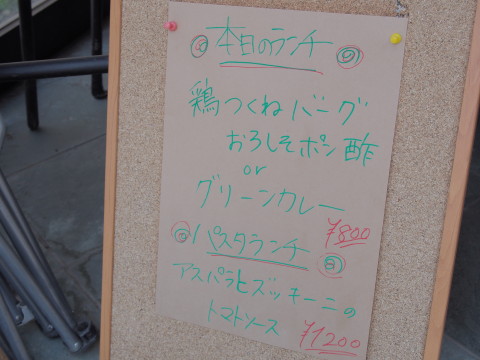 本日のランチ
鶏つくねバーグ
おろしそポン酢
or
グリーンカレー
¥800
パスタランチ
アスパラとズッキーニの
トマトソース
¥1200